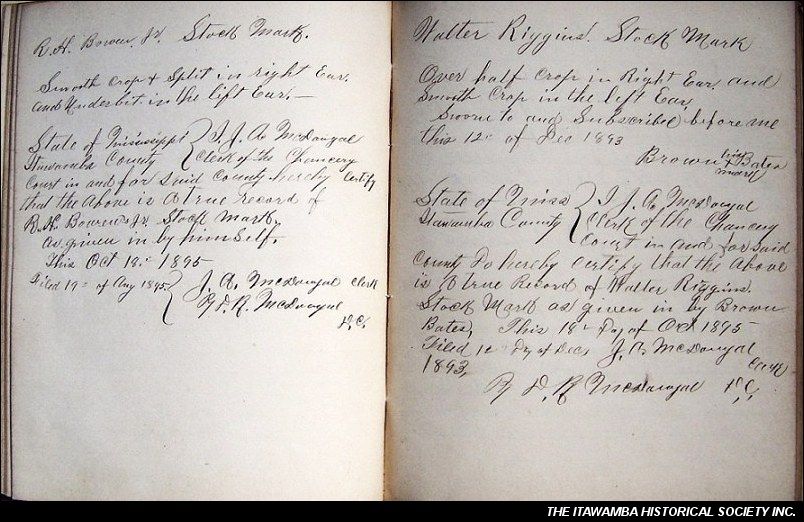 R. H. Bowen, Jr. Stock Mark.
Smooth Crop & Split in right Ear.
and Underbit in the lift Ear.—
State of Mississippi } I J. A. McDougal
Itawamba County Clerk of the Chancery
Court in and for said County hereby Certify
that the Above is A true record of
R. H. Bowen Jr. Stock Mark.
as given in by himself.
This Oct 18th 1895
Filed 19th of Aug 1895 } J. A. McDougal Clerk
By D. R. McDougal
D. C.
Walter Riggins. Stock Mark
Over half Crop in Right Ear. and
Smooth Crop in the left Ear.
Sworn to and Subscribed before me
this 12th of Dec 1893
Brown his Bates
mark
State of Miss } I J. A. McDougal
Itawamba County Clerk of the Chancery
Court in and for said
County do hereby Certify that the Above
is A true Record of Walter Riggins.
Stock Mark as given in by Brown
Bates, This 18th Day of Oct 1895
Filed 12th Dy of Dec, J. A. McDougal
1893, Clerk
By D. R. McDougal D. C.
THE ITAWAMBA HISTORICAL SOCIETY INC.